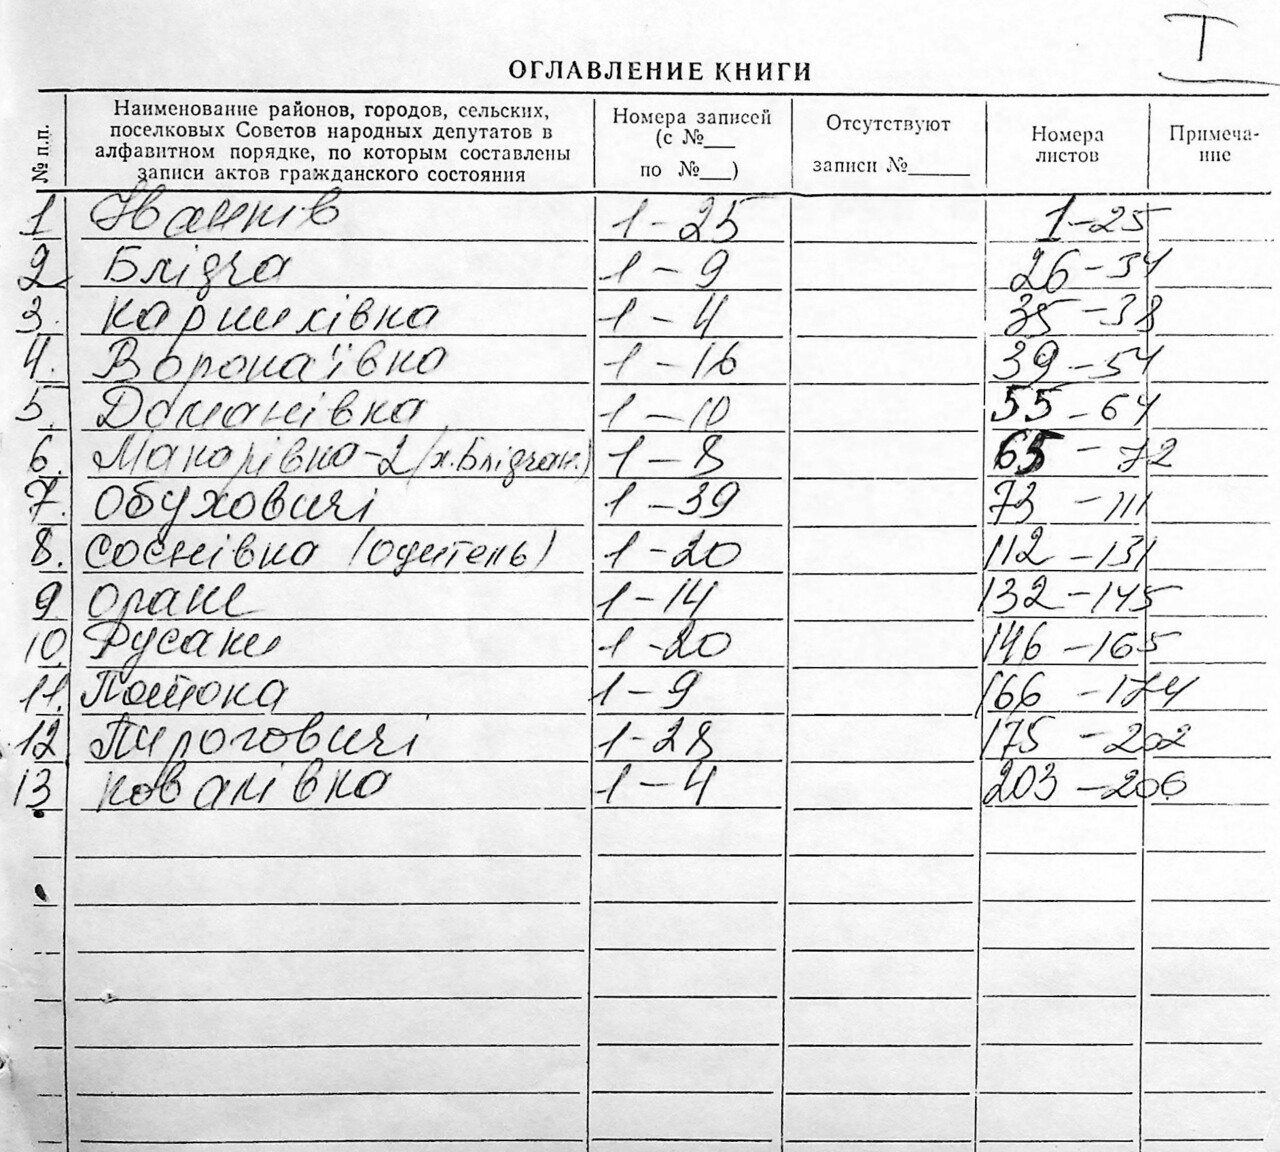 I
ОГЛАВЛЕНИЕ КНИГИ
№ п.п.
Наименование районов, городов, сельских,
поселковых Советов народных депутатов в
алфавитном порядке, по которым составлены
записи актов гражданского состояния
Номера записей
(с №___
по №___)
Отсутствуют
записи №_____
Номера
листов
Примеча-
ние
1 Іванків 1-25 1-25
2 Блідча 1-9 26-34
3. 1-4 35-38
4. 1-16 39-54
5. Доманівка 1-10 55-64
6. Макарівка-2 (х. Блідчан.) 1-8 65-72
7. Обуховичі 1-39 73-111
8. Соснівка (Одитель) 1-20 112-131
9 Оране 1-14 132-145
10. Русаки 1-20 146-165
11. 1-9 166-174
12 Пироговичі 1-28 175-202
13. Ковалівка 1-4 203-206